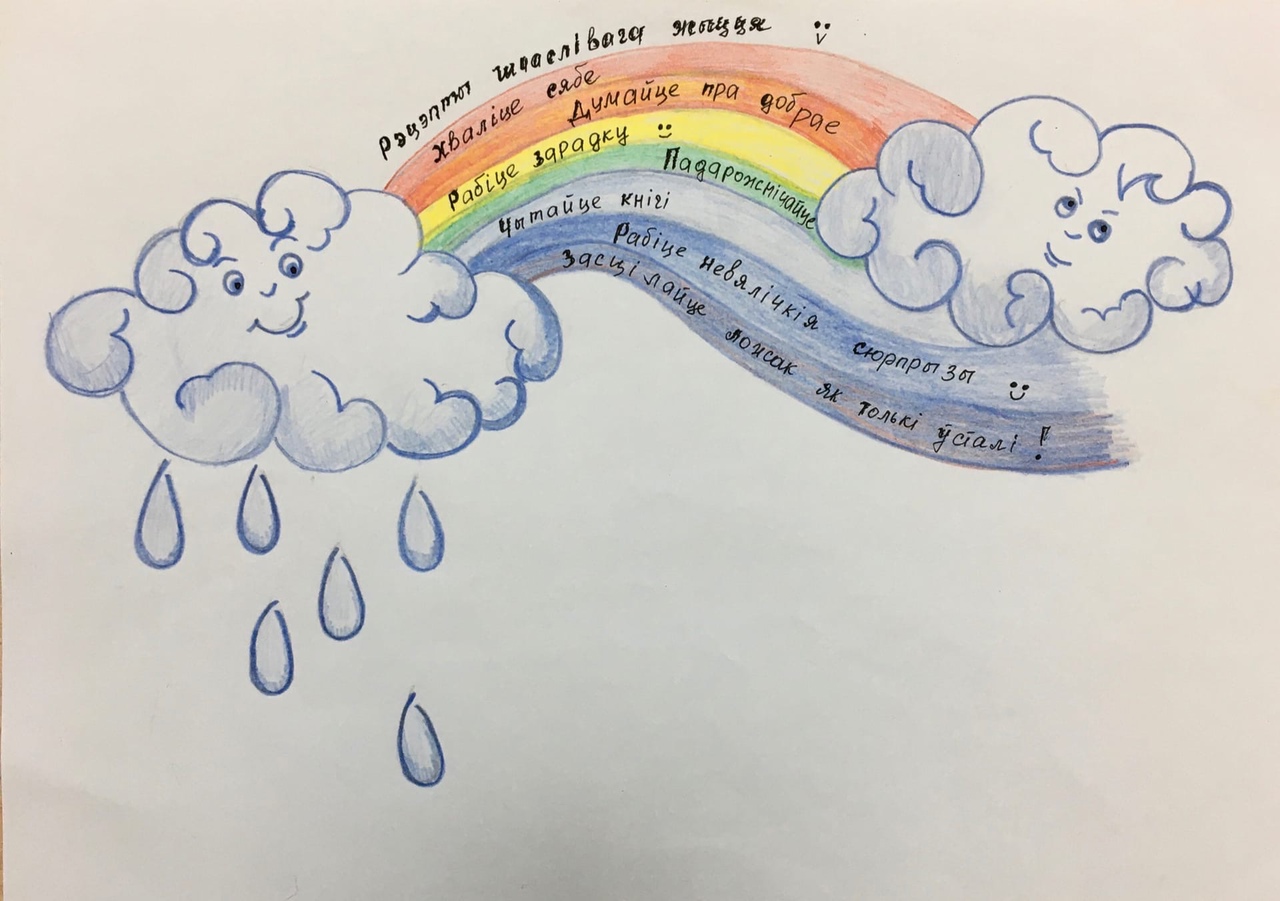 Рэцэпты шчаслівага жыцця
Хваліце сябе
Думайце пра добрае
Рабіце зарадку
Падарожнічайце
Чытайце кнігі
Рабіце невялічкія сюрпрызы
Засцілайце ложак як толькі ўсталі!